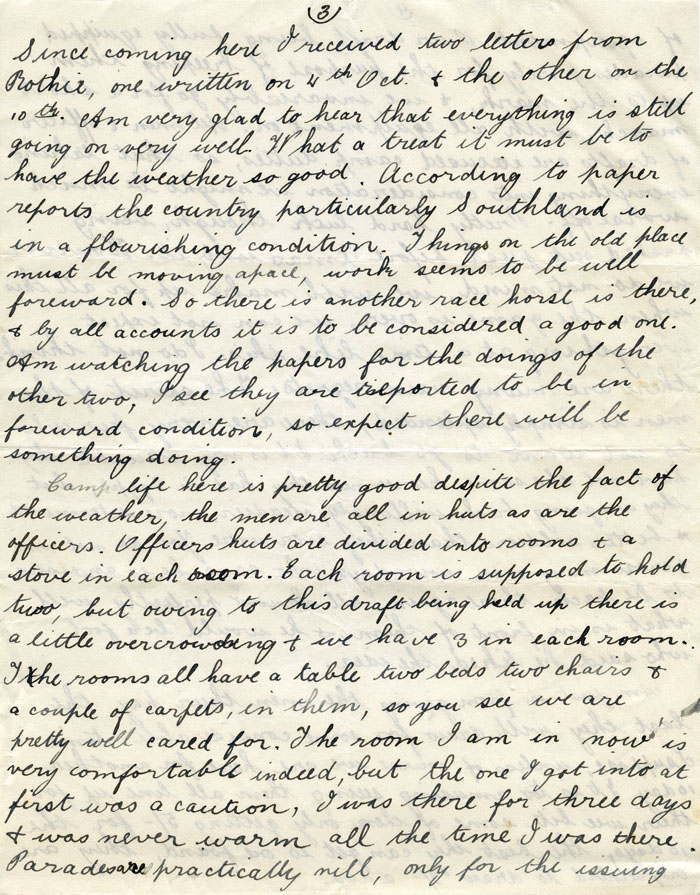 (3)
Since coming here I received two letters from
Bothie, one written on 4th Oct. & the other on the
10th. Am very glad to hear that everything is still
going on very well. What a treat it must be to
have the weather so good. According to paper
reports the country particularly Southland is
in a flourishing condition. Things on the old place
must be moving apace, work seems to be well
foreward. So there is another race horse is there,
& by all accounts it is to be considered a good one.
Am watching the papers for the doings of the
other two, I see they are reported to be in
foreward condition, so expect there will be
something doing.
Camp life here is pretty good despite the fact of
the weather, the men are all in huts as are the
officers. Officers huts are divided into rooms & a
stove in each room. Each room is supposed to hold
two, but owing to this draft being held up there is
a little overcrowding & we have 3 in each room.
The rooms all have a table two beds two chairs &
a couple of carpets, in them, so you see we are
pretty well cared for. The room I am in now is
very comfortable indeed, but the one I got into at
first was a caution, I was there for three days
& was never warm all the time I was there.
Parades are practically nill, only for the issuing